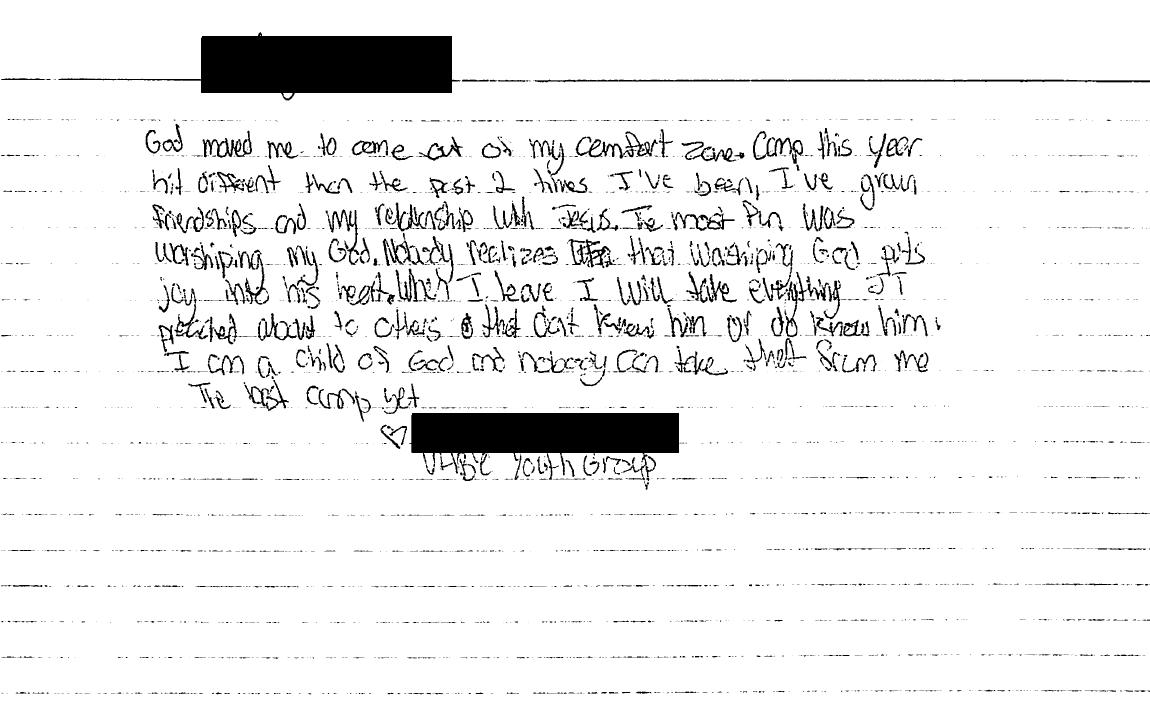 God moved me to come out of my comfort zone. Camp this year
hit different then the past 2 times I've been, I've grown
friendships and my relationship with Jesus. The most fun was
worshiping my God. Nobody realizes that worshiping God puts
joy into his heart. When I leave I will take everything JT
preached about to others that don't know him or do know him.
I am a child of God and nobody can take that from me
The best camp yet
♡
Youth Group